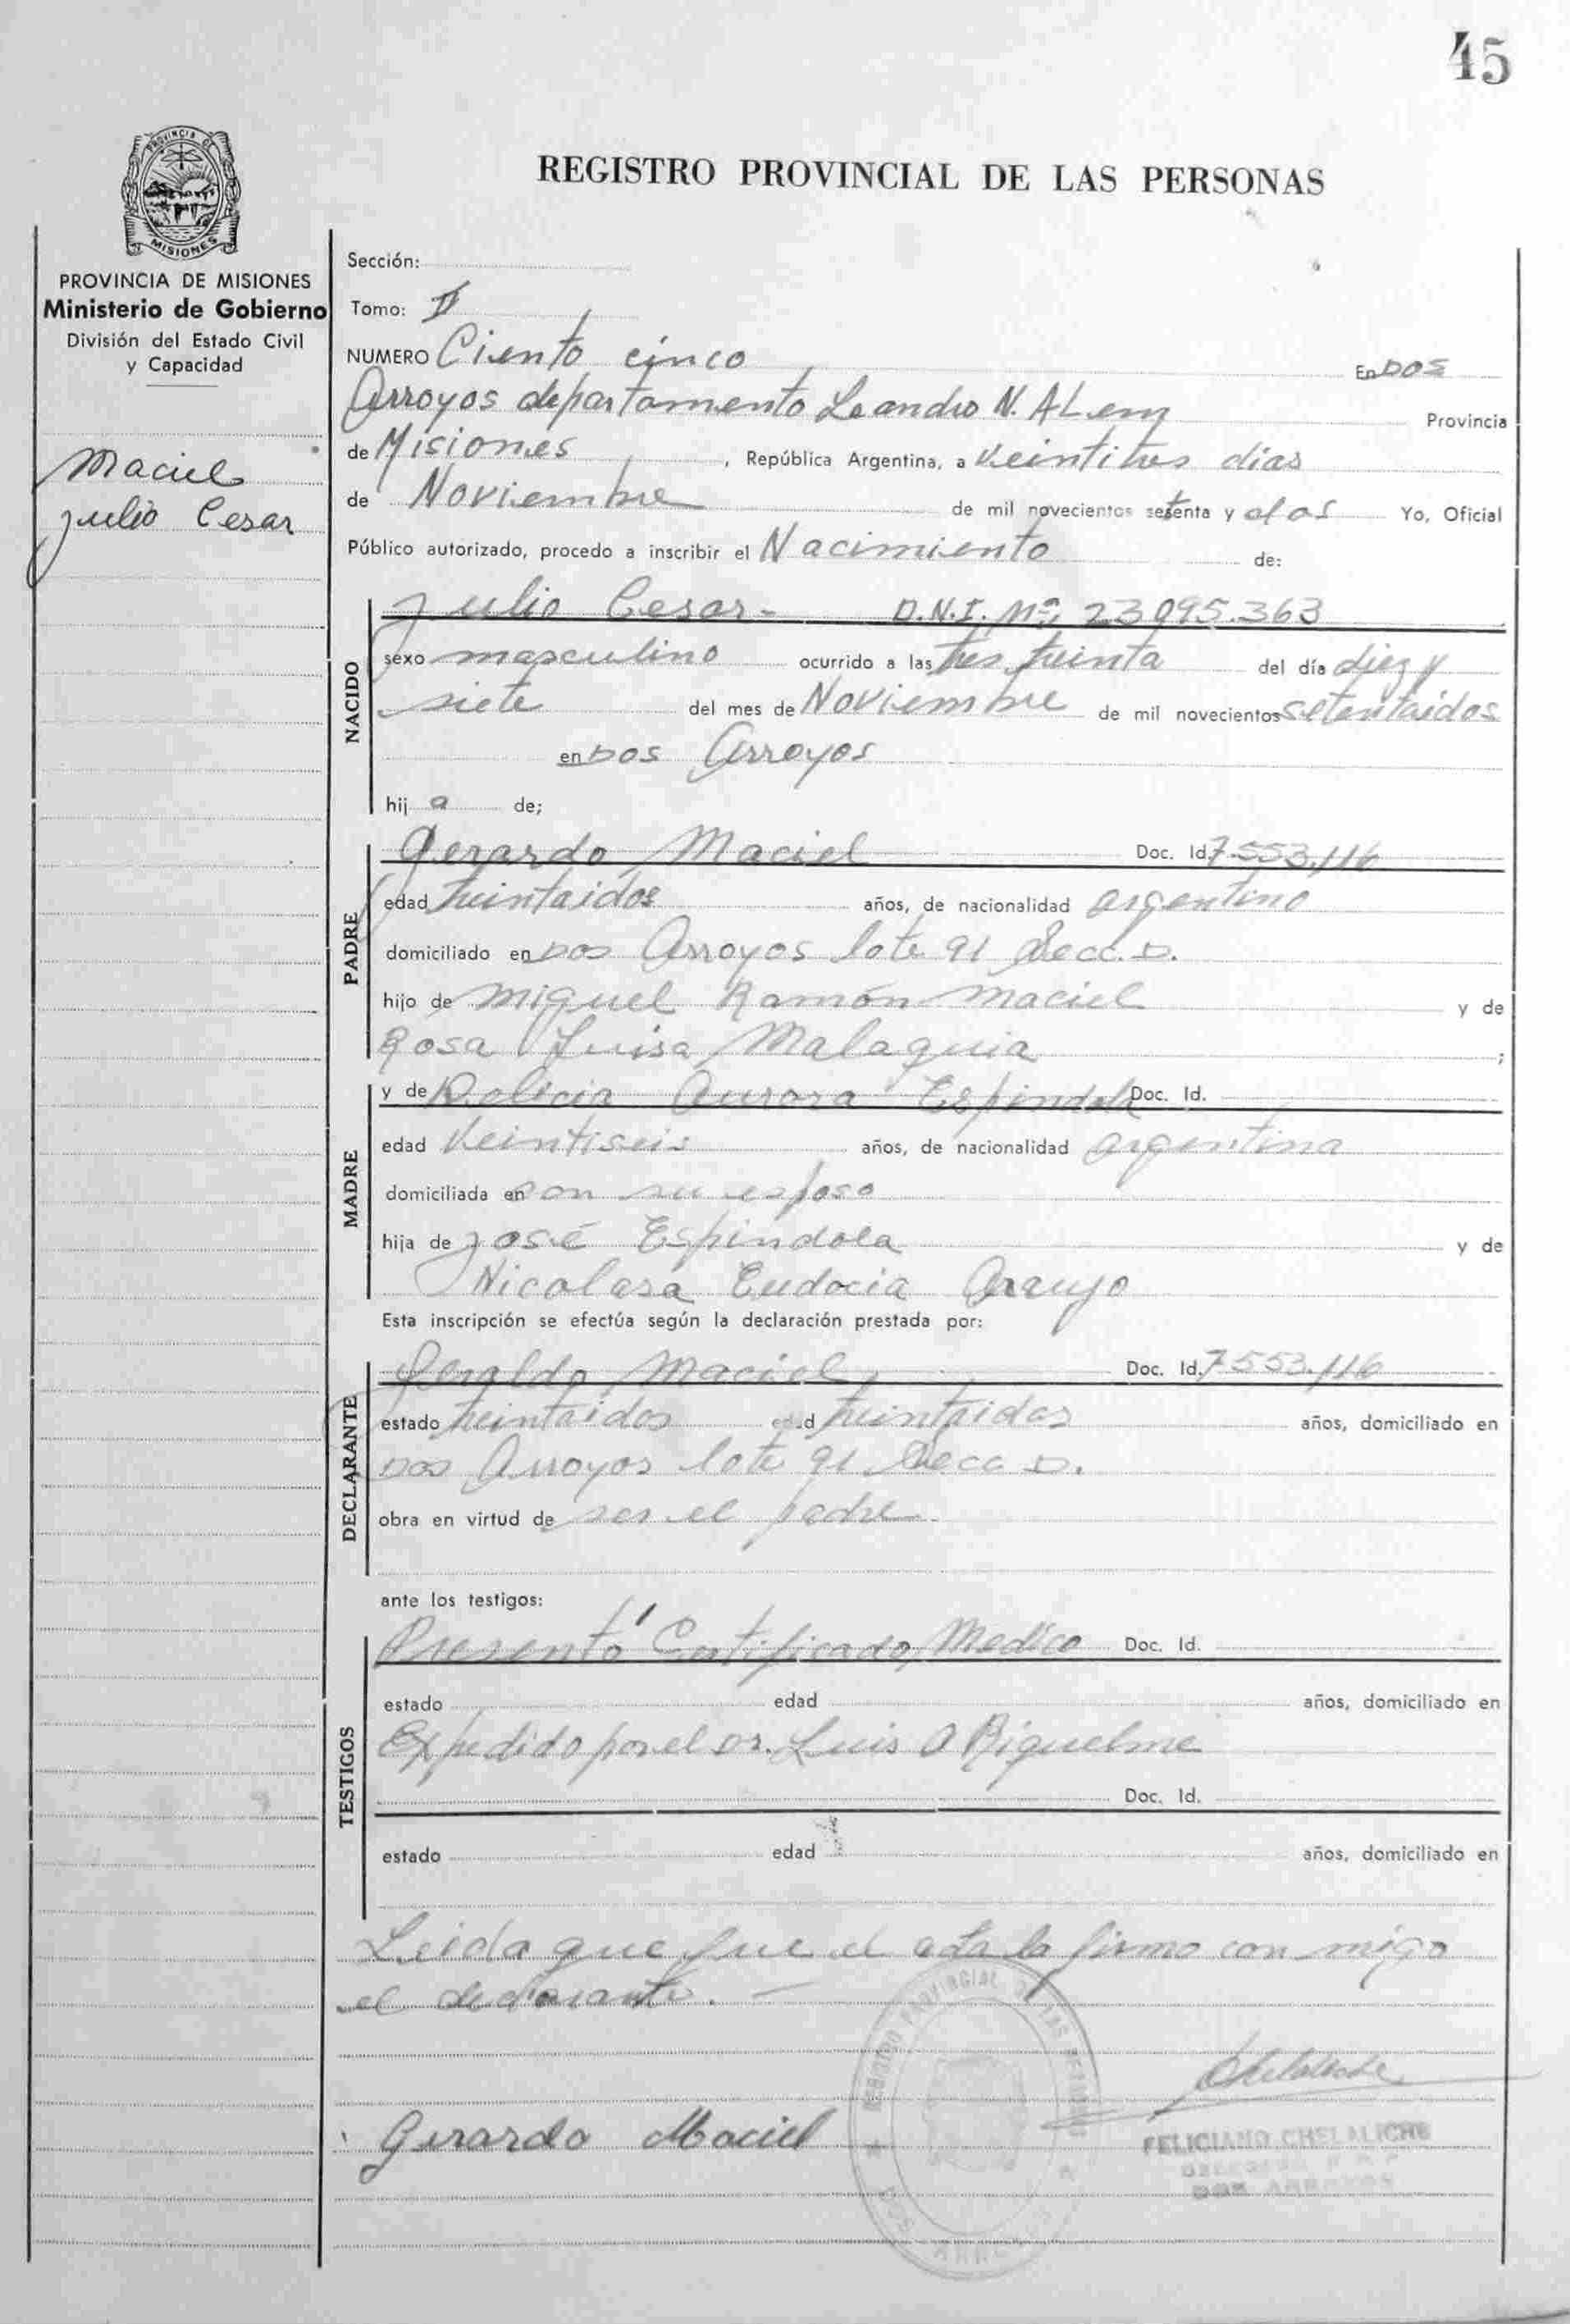 45
PROVINCIA DE
MISIONES
REGISTRO PROVINCIAL DE LAS PERSONAS
PROVINCIA DE MISIONES
Ministerio de Gobierno
División del Estado Civil
y Capacidad
Maciel
Julio Cesar
Sección:
Tomo: II
NUMERO Ciento cinco En Dos
Arroyos departamento Leandro N. ALem Provincia
de Misiones, República Argentina, a veintitres dias
de Noviembre de mil novecientos setenta y dos Yo, Oficial
Público autorizado, procedo a inscribir el Nacimiento de:
NACIDO
Julio Cesar - D.N.I. Nº: 23.095.363
sexo masculino ocurrido a las tres treinta del día diez y
siete del mes de Noviembre de mil novecientos setentaidos
en Dos Arroyos
hij a de;
PADRE
Gerardo Maciel Doc. Id. 7.553.116
edad treintaidos años, de nacionalidad argentino
domiciliado en Dos Arroyos lote 91 Secc. D.
hijo de Miguel Ramón Maciel y de
Rosa Luisa Malaquia ;
MADRE
y de Aurora Espindola Doc. Id.
edad veintiseis años, de nacionalidad argentina
domiciliada en con su esposo
hija de José Espindola y de
Nicolasa Eudocia Araujo
Esta inscripción se efectúa según la declaración prestada por:
DECLARANTE
Geraldo Maciel Doc. Id. 7.553.116
estado treintaidos edad treintaidos años, domiciliado en
Dos Arroyos lote 91 Secc D.
obra en virtud de ser el padre
ante los testigos:
TESTIGOS
Presentó Certificado Medico Doc. Id.
estado edad años, domiciliado en
Expedido por el Dr. Luis A Riquelme
Doc. Id.
estado edad años, domiciliado en
Leida que fue el acta la firmo con migo
el declarante. -
Gerardo Maciel
FELICIANO CHELALICHE
DOS ARROYOS